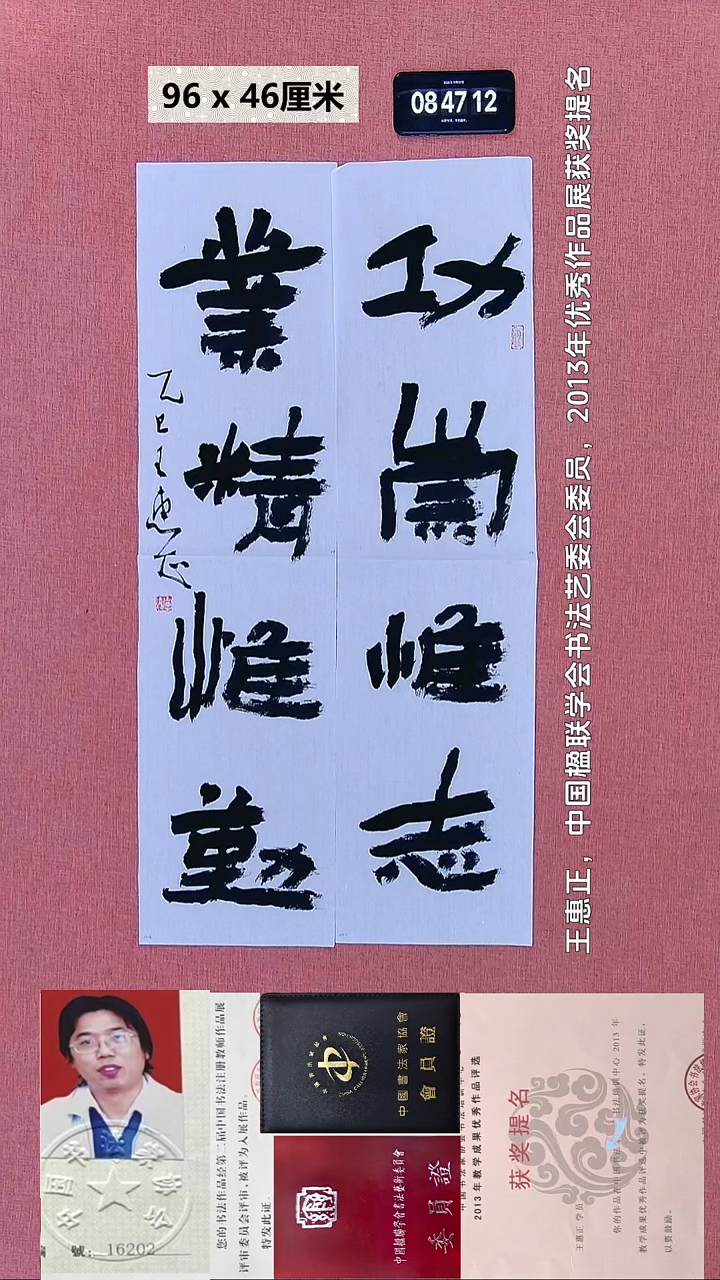 96 x 46厘米
08 47 12
功崇惟志
業精惟勤
乙巳王惠正
王惠正，中国楹联学会书法艺委会委员，2013年优秀作品展获奖提名
號： 16202
您的书法作品经第二届中国书法注册教师作品展
评审委员会评审，被评为入展作品。
特发此证。
中國書法家協會
會員證
中國楹聯學會書法藝術委員會
委員證
2013 年教学成果优秀作品评选
获奖提名
王惠正 学员
教学成果优秀作品评选中被评为获奖提名，特发此证，
以资鼓励。